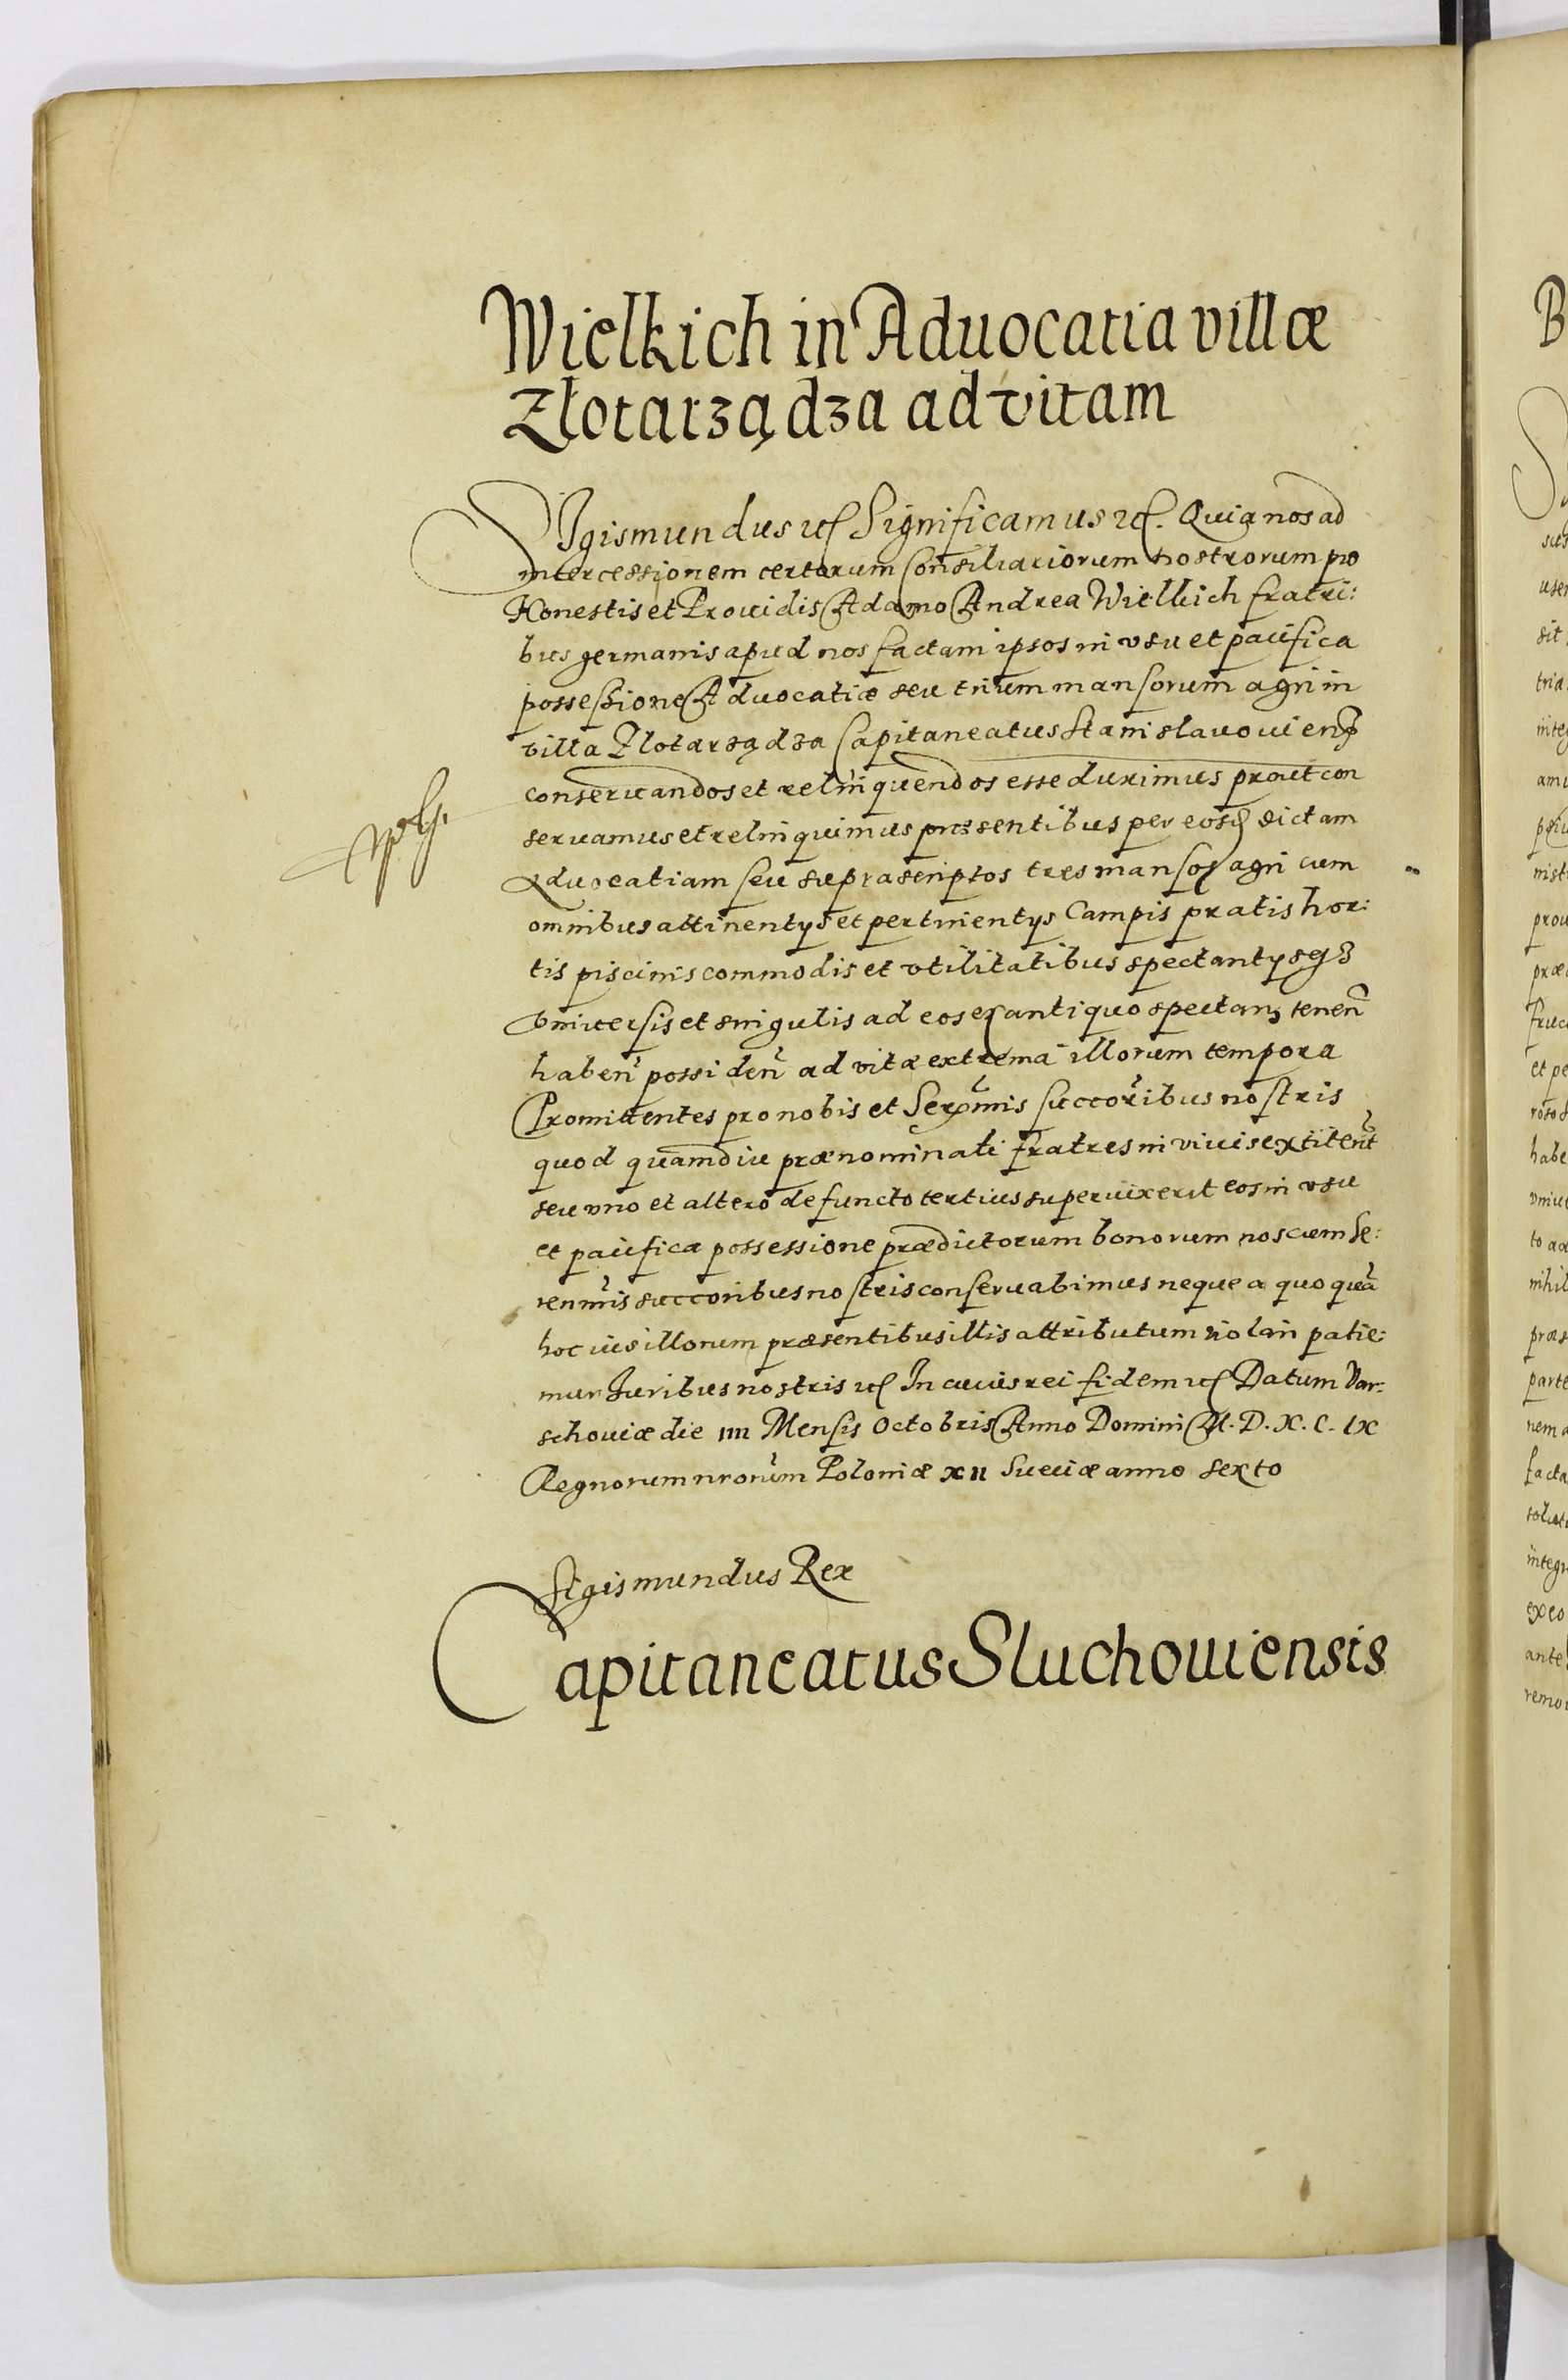 Wielkich in Aduocatia villæ
Złotarządza ad vitam
SIgismundus etc Significamus etc. Quia nos ad
intercessionem certorum Consiliariorum nostrorum pro
Honestis et Prouidis Adamo Andrea Wielkich fratri:
bus germanis apud nos factam ipsos in vsu et pacifica
possessione Aduocatiæ seu trium mansorum agri in
villa Zlotarządza Capitaneatus Stanislauouien
conseruandos et relinquendos esse duximus prout con
seruamus et relinquimus præsentibus per eosd dictam
Aduocatiam seu suprascriptos tres mansos agri cum
omnibus attinentys et pertinentys Campis pratis hor:
tis piscinis commodis et vtilitatibus spectantysq3
vniuersis et singulis ad eos ex antiquo spectan tenen
haben possiden ad vitæ extrema illorum tempora
Promittentes pro nobis et Sermis succoribus nostris
quod quamdiu prænominati fratres in viuis extitent
seu vno et altero defuncto tertius superuixerit eos in vsu
et pacifica possessione prædictorum bonorum nos cum Se:
renmis succoribus nostris conseruabimus neque a quoquã
hoc ius illorum præsentibus illis attributum violari patie:
mur Juribus nostris etc In cuius rei fidem etc Datum Var:
schouiæ die IIII Mensis Octobris Anno Domini M.D.X.C.IX
Regnorum nrorum Poloniæ XII Sueciæ anno sexto
Sigismundus Rex
Capitaneatus Sluchouiensis